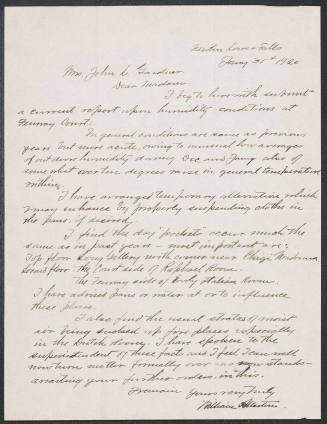 Newton Lower Falls
Jany 31st 1920
Mrs. John L. Gardner
Dear Madam
I beg to herewith submit
a current report upon humidity conditions at
Fenway Court.
In general conditions are same as previous
years but more acute owing to unusual low average
of out door humidity during Dec and Jany also of
some what over ten degrees raise in general temperature
within.
I have arranged temporary alternative which
may in house by properly suspending cloths in
the pans if desired.
I find the dry pockets occur much the
same as in past years - most important are:
Top floor Long Gallery north corner near Chigi Madonna
Second floor - the Court side of Raphael Room.
The Fenway side of Early Italian Room.
I have advised pans or in or at or to influence
these places.
I also find the usual strates of moist
air being sucked up fire places especially
in the Dutch Room. I have spoken to the
superintendent of these facts and I feel I can well
now turn matter formally over as now stands -
awaiting your further orders in this.
I remain Yours very truly
William